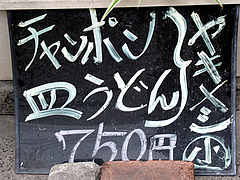 チャンポン
皿うどん
ヤキメシ小
750円